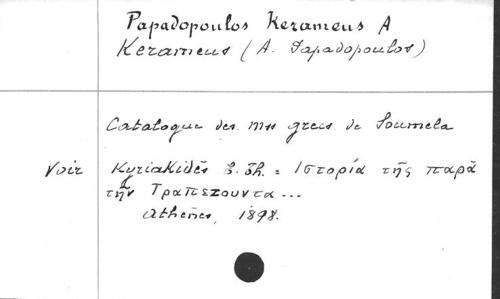 Papadopoulos Kerameus A
Kerameus (A. Papadopoulos)
Catalogue des mss grecs de Soumela
Voir Kyriakidès E. Th. = Ἱστορία τῆς παρὰ
τὴν Τραπεζοῦντα...
Athènes, 1898.